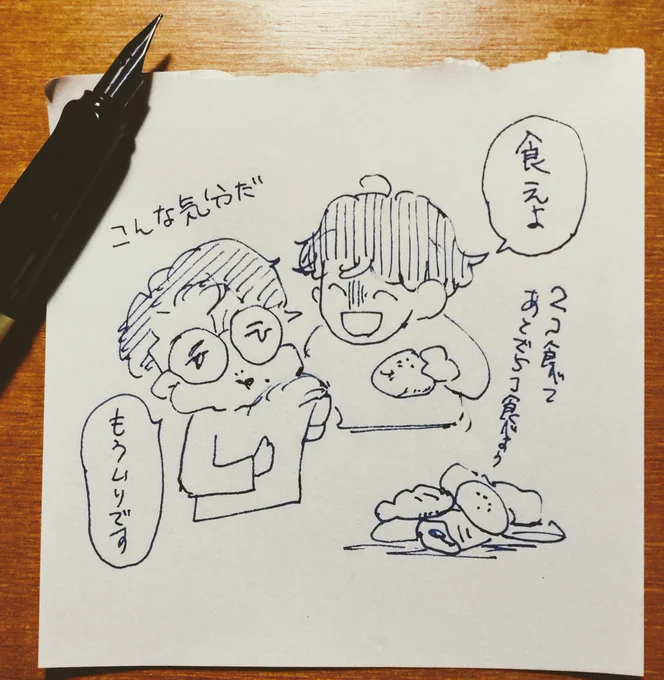 食えよ
こんな気分だ
2コ食べて
あとで5コ食べよう
もうムリです